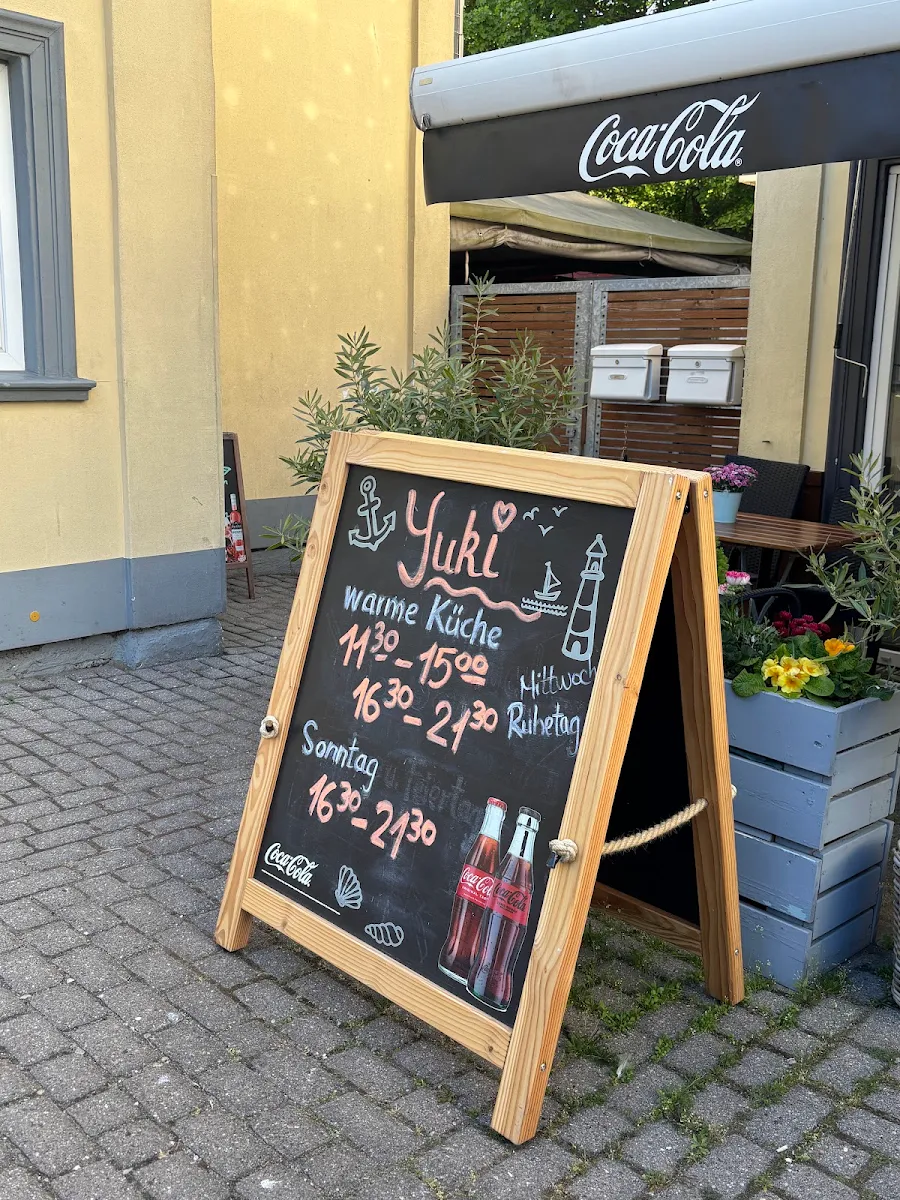 Coca-Cola®
Yuki
warme Küche
11³⁰ - 15⁰⁰
16³⁰ - 21³⁰
Mittwoch
Ruhetag
Sonntag
u. Feiertag
16³⁰ - 21³⁰
Coca-Cola
Coca-Cola
Coca-Cola